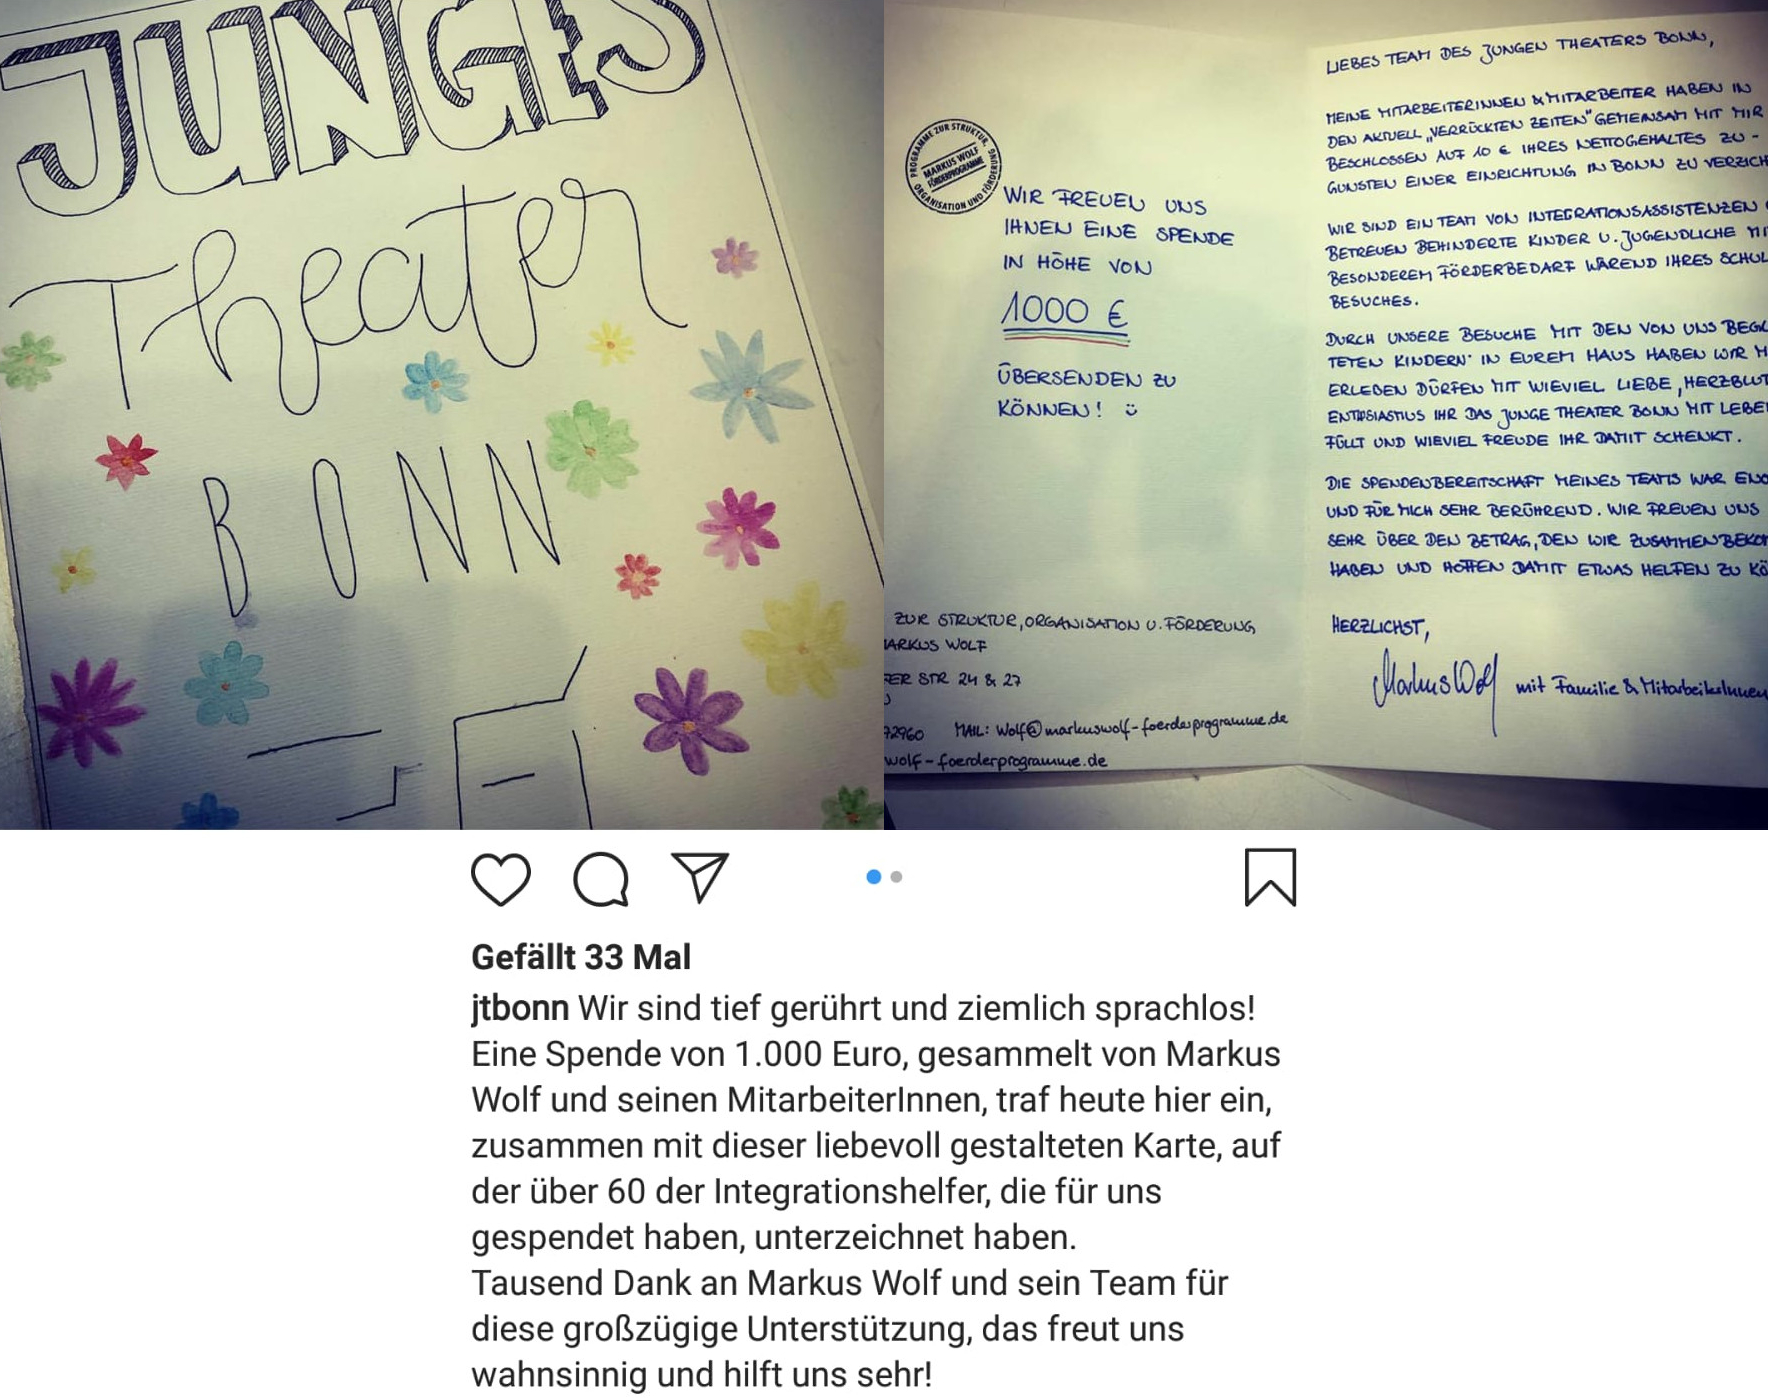 JUNGES
Theater
BONN
PROGRAMME ZUR STRUKTUR, ORGANISATION UND FÖRDERUNG
MARKUS WOLF
FÖRDERPROGRAMME
WIR FREUEN UNS
IHNEN EINE SPENDE
IN HÖHE VON
1000 €
ÜBERSENDEN ZU
KÖNNEN! ü
ZUR STRUKTUR, ORGANISATION U. FÖRDERUNG
ARKUS WOLF
ER STR 24 & 27
72960 MAIL: Wolf@markuswolf-foerderprogramme.de
wolf-foerderprogramme.de
LIEBES TEAM DES JUNGEN THEATERS BONN,
MEINE MITARBEITERINNEN & MITARBEITER HABEN IN
DEN AKTUELL „VERRÜCKTEN ZEITEN" GEMEINSAM MIT MIR
BESCHLOSSEN AUF 10 € IHRES NETTOGEHALTES ZU-
GUNSTEN EINER EINRICHTUNG IN BONN ZU VERZICH
WIR SIND EIN TEAM VON INTEGRATIONSASSISTENZEN
BETREUEN BEHINDERTE KINDER U. JUGENDLICHE MI
BESONDEREM FÖRDERBEDARF WÄREND IHRES SCHUL
BESUCHES.
DURCH UNSERE BESUCHE MIT DEN VON UNS BEGL
TETEN KINDERN IN EUREM HAUS HABEN WIR M
ERLEBEN DÜRFEN MIT WIEVIEL LIEBE, HERZBLUT
IHR DAS JUNGE THEATER BONN MIT LEBE
FÜLLT UND WIEVIEL FREUDE IHR DAMIT SCHENKT.
DIE SPENDENBEREITSCHAFT MEINES TEAMS WAR ENO
UND FÜR MICH SEHR BERÜHREND. WIR FREUEN UNS
SEHR ÜBER DEN BETRAG, DEN WIR ZUSAMMENBEKO
HABEN UND HOFFEN DAMIT ETWAS HELFEN ZU KÖ
HERZLICHST,
Markus Wolf mit Familie & MitarbeiterInnen
Gefällt 33 Mal
jtbonn Wir sind tief gerührt und ziemlich sprachlos!
Eine Spende von 1.000 Euro, gesammelt von Markus
Wolf und seinen MitarbeiterInnen, traf heute hier ein,
zusammen mit dieser liebevoll gestalteten Karte, auf
der über 60 der Integrationshelfer, die für uns
gespendet haben, unterzeichnet haben.
Tausend Dank an Markus Wolf und sein Team für
diese großzügige Unterstützung, das freut uns
wahnsinnig und hilft uns sehr!